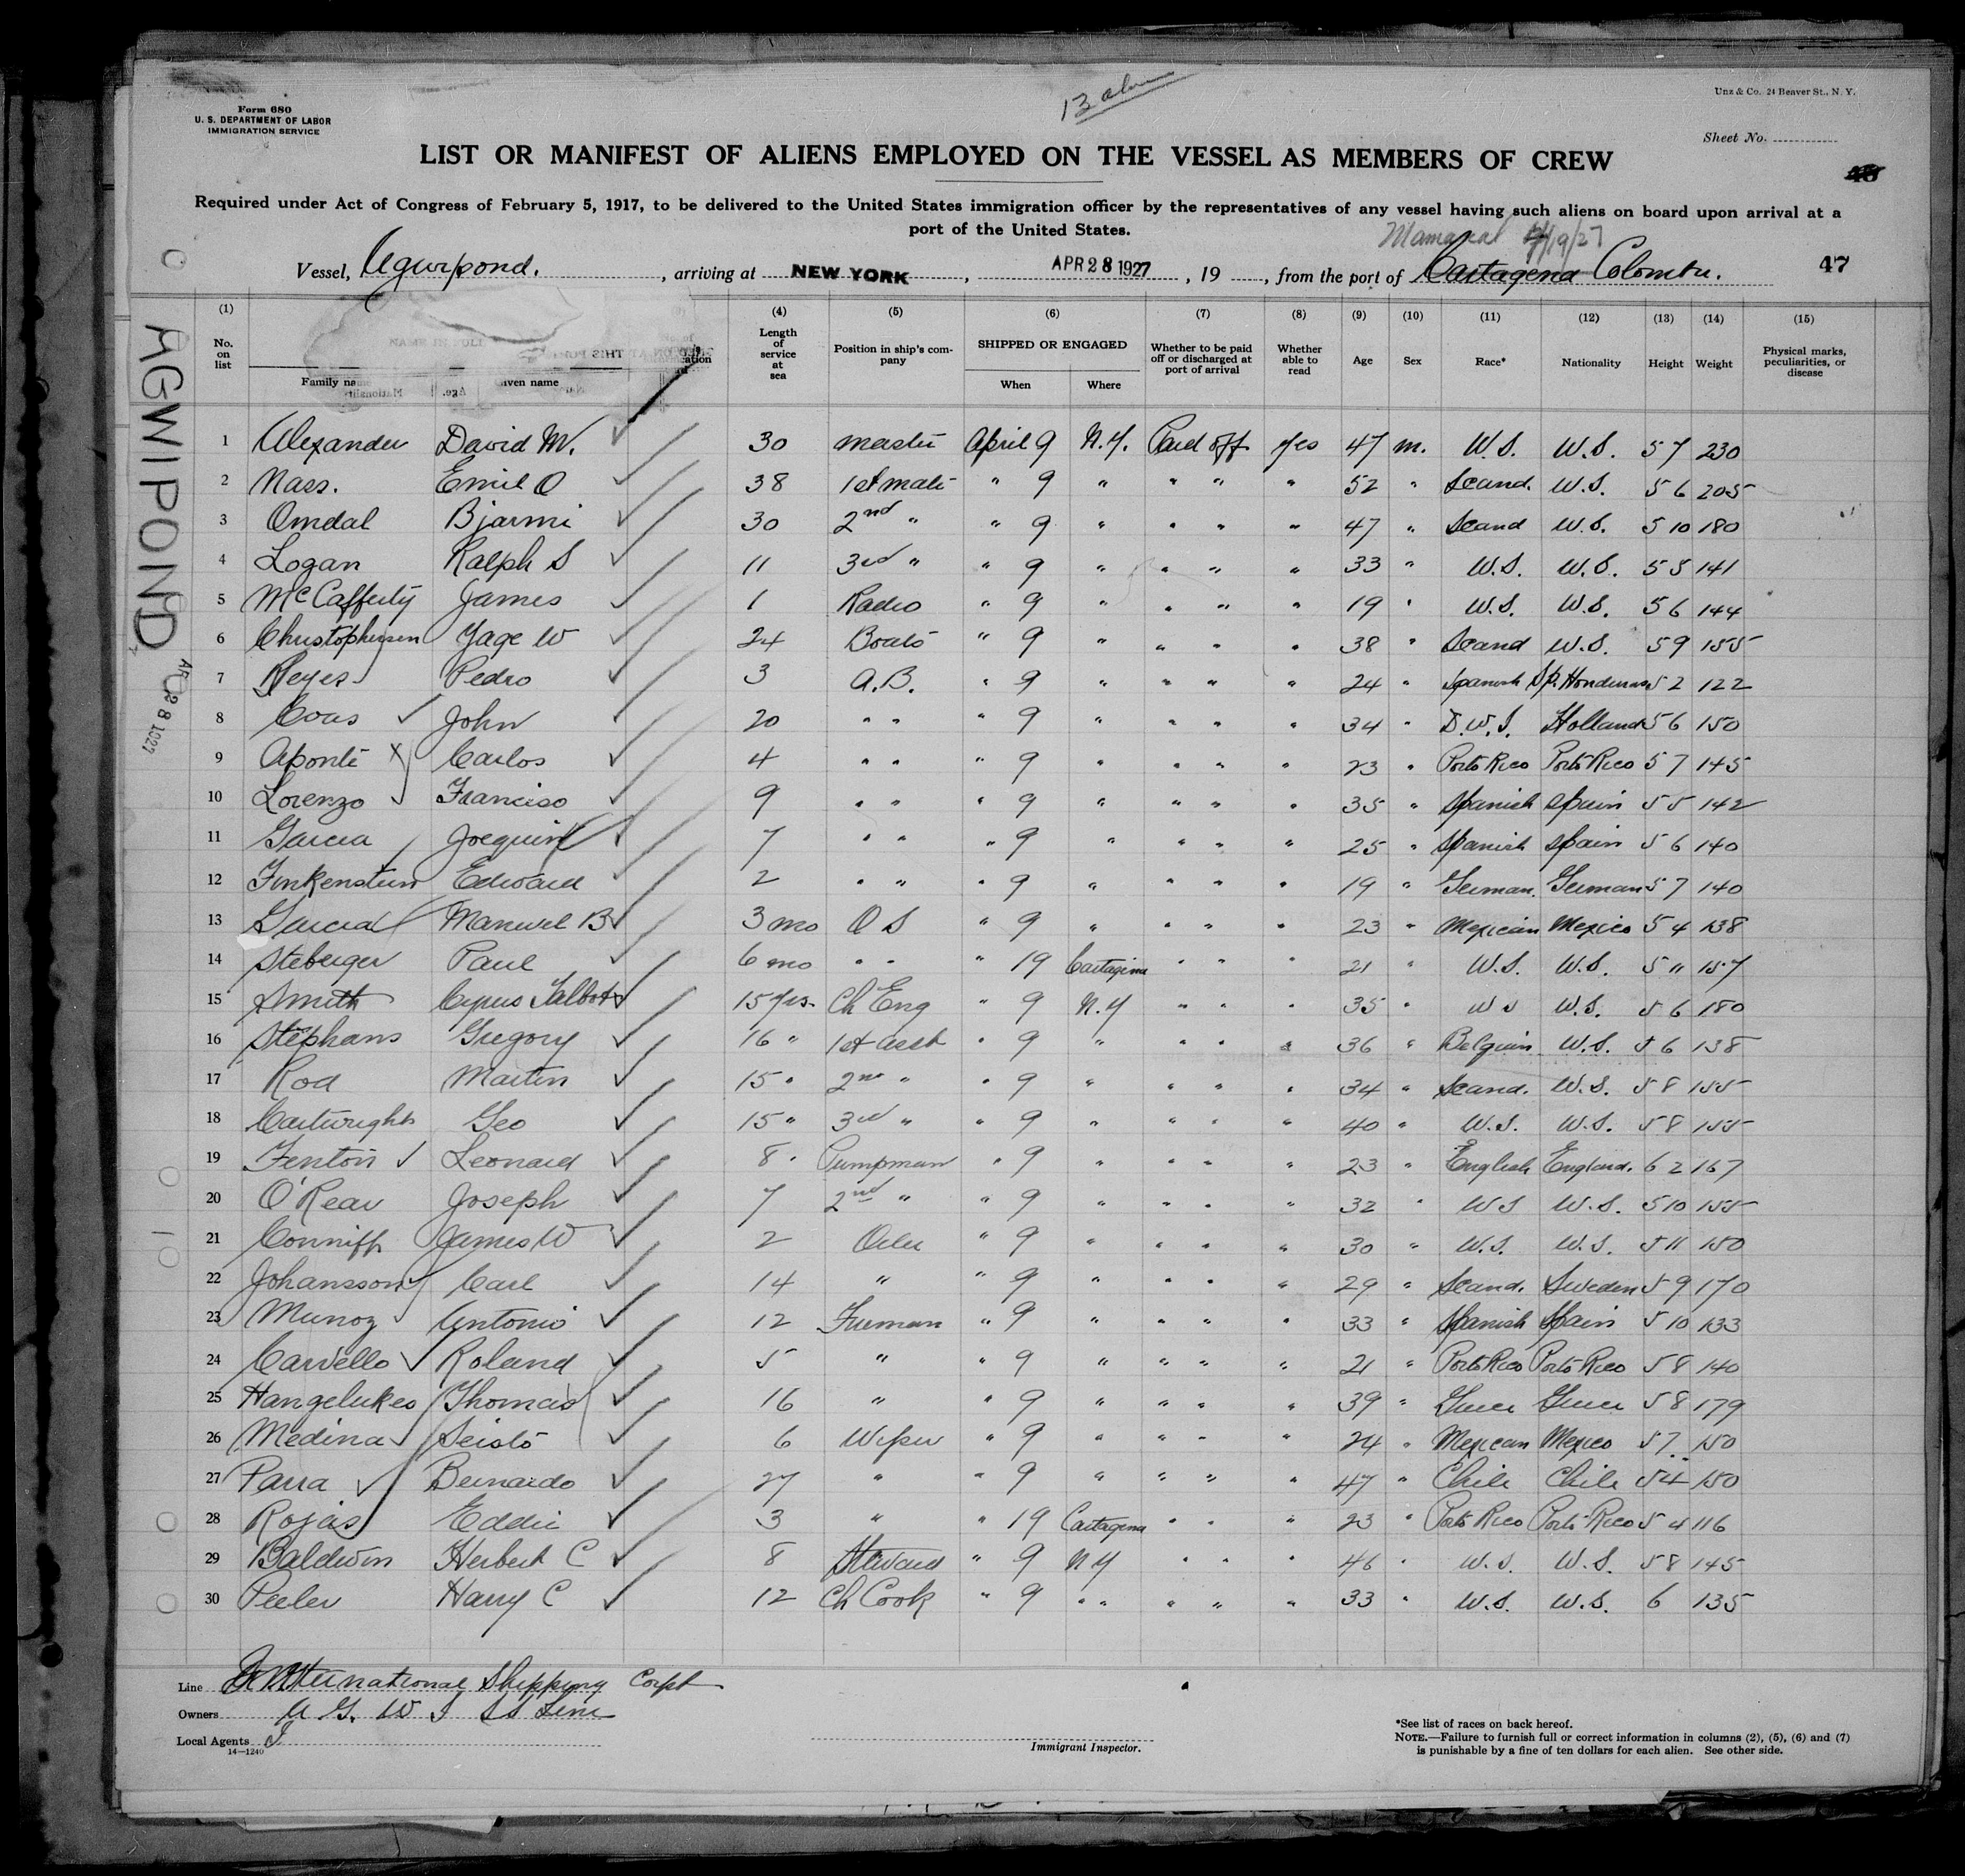 13 alms
Form 680
U. S. DEPARTMENT OF LABOR
IMMIGRATION SERVICE
Unz & Co. 24 Beaver St., N. Y.
Sheet No.
LIST OR MANIFEST OF ALIENS EMPLOYED ON THE VESSEL AS MEMBERS OF CREW
Required under Act of Congress of February 5, 1917, to be delivered to the United States immigration officer by the representatives of any vessel having such aliens on board upon arrival at a
port of the United States.
Mamonal 4/19/27
Vessel, Agwipond. , arriving at NEW YORK , APR 28 1927 , 19 , from the port of Cartagena Colombia. 47
AGWIPOND
APR 28 1927
(1) (4) (5) (6) (7) (8) (9) (10) (11) (12) (13) (14) (15)
No. on list Family name Given name Length of service at sea Position in ship's company SHIPPED OR ENGAGED When Where Whether to be paid off or discharged at port of arrival Whether able to read Age Sex Race* Nationality Height Weight Physical marks, peculiarities, or disease
1 Alexander David M. 30 master April 9 N.Y. Paid off yes 47 m. U.S. U.S. 5 7 230
2 Nass. Emil O 38 1st mate " 9 " " " " 52 " Scand. U.S. 5 6 205
3 Omdal Bjarmi 30 2nd " " 9 " " " " 47 " Scand U.S. 5 10 180
4 Logan Ralph S 11 3rd " " 9 " " " " 33 " U.S. U.S. 5 5 141
5 McCafferty James 1 Radio " 9 " " " " 19 " U.S. U.S. 5 6 144
6 Christophersen Yage W 24 Boats " 9 " " " " 38 " Scand U.S. 5 9 155
7 Reyes Pedro 3 A.B. " 9 " " " " 24 " Spanish Sp. Honduras 5 2 122
8 Coas John 20 " " " 9 " " " " 34 " D.W.I. Holland 5 6 150
9 Aponte Carlos 4 " " " 9 " " " " 23 " Porto Rico Porto Rico 5 7 145
10 Lorenzo Franciso 9 " " " 9 " " " " 35 " Spanish Spain 5 5 142
11 Garcia Joequin 7 " " " 9 " " " " 25 " Spanish Spain 5 6 140
12 Finkenstein Edward 2 " " " 9 " " " " 19 " German. German 5 7 140
13 Garcia Manuel B 3 mo O S " 9 " " " " 23 " Mexican Mexico 5 4 138
14 Steberger Paul 6 mo " " " 19 Cartagena " " " 21 " U.S. U.S. 5 11 157
15 Smith Cyrus Talbot 15 yrs. Ch Eng " 9 N.Y " " " 35 " U S U.S. 5 6 180
16 Stephans Gregory 16 " 1st asst " 9 " " " " 36 " Belgian U.S. 5 6 138
17 Rod Martin 15 " 2nd " " 9 " " " " 34 " Scand. U.S. 5 8 155
18 Cartwright Geo 15 " 3rd " " 9 " " " " 40 " U.S. U.S. 5 8 155
19 Fenton Leonard 8 " Pumpman " 9 " " " " 23 " English England. 6 2 167
20 O'Rear Joseph 7 2nd " " 9 " " " " 32 " U S U.S. 5 10 155
21 Conniff James W 2 Oiler " 9 " " " " 30 " U.S. U.S. 5 11 150
22 Johansson Carl 14 " " 9 " " " " 29 " Scand. Sweden 5 9 170
23 Munoz Antonio 12 Fireman " 9 " " " " 33 " Spanish Spain 5 10 133
24 Carvello Roland 5 " " 9 " " " " 21 " Porto Rico Porto Rico 5 8 140
25 Hangelukes Thomas 16 " " 9 " " " " 39 " Greece Greece 5 8 179
26 Medina Seisto 6 Wiper " 9 " " " " 24 " Mexican Mexico 5 7 150
27 Parra Bernardo 27 " " 9 " " " " 47 " Chile Chile 5 4 150
28 Rojas Eddie 3 " " 19 Cartagena " " " 23 " Porto Rico Porto Rico 5 4 116
29 Baldwin Herbert C 8 Steward " 9 N Y " " " 46 " U.S. U.S. 5 8 145
30 Peeler Harry C 12 Ch Cook " 9 " " " " " 33 " U.S. U.S. 6 135
Line International Shipping Corpt
Owners A G. W I SS Line
Local Agents
14—1240
Immigrant Inspector.
*See list of races on back hereof.
NOTE.—Failure to furnish full or correct information in columns (2), (5), (6) and (7)
is punishable by a fine of ten dollars for each alien. See other side.